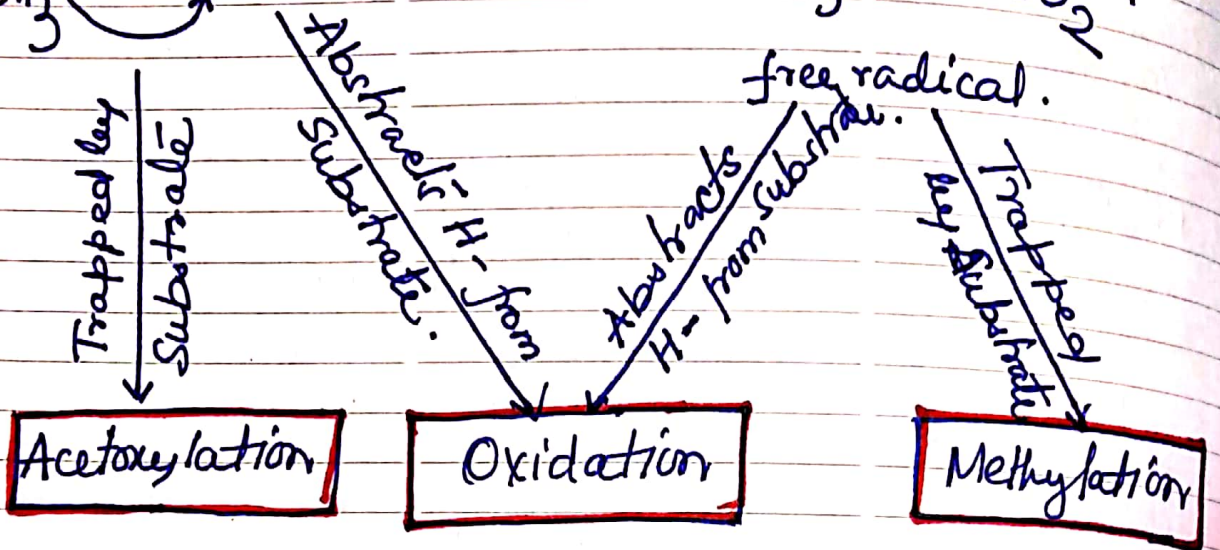 3
2
free radical.
Trapped by
Substrate
Abstracts H- from
Substrate.
Abstracts
H- from substrate.
Trapped
by Substrate
Acetoxylation
Oxidation
Methylation